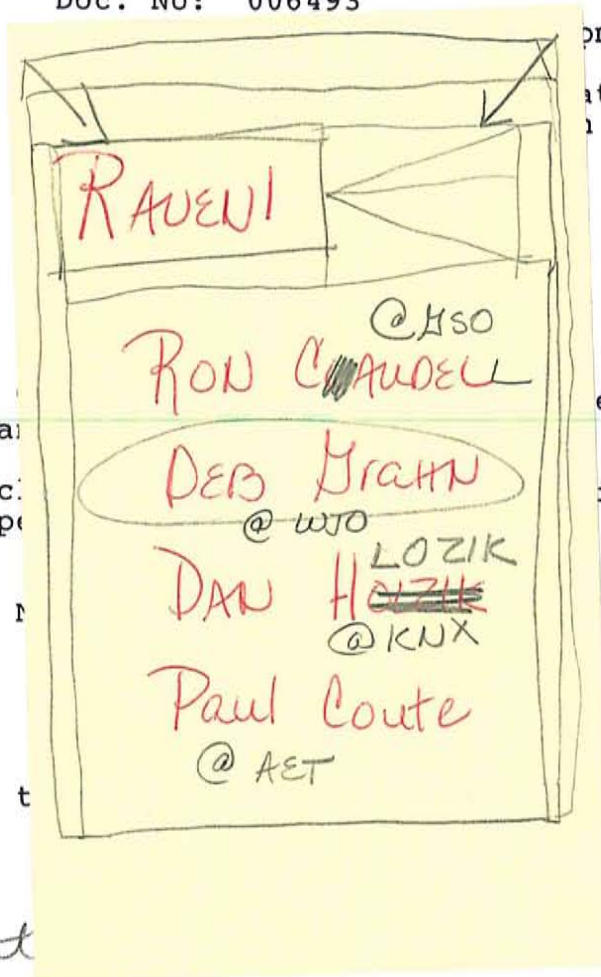 Doc. No: 006493
RAVEN!
@GSO
RON CAUDELL
DEB GrAHN
@ WJO
LOZIK
DAN H
@KNX
Paul Coute
@ AET